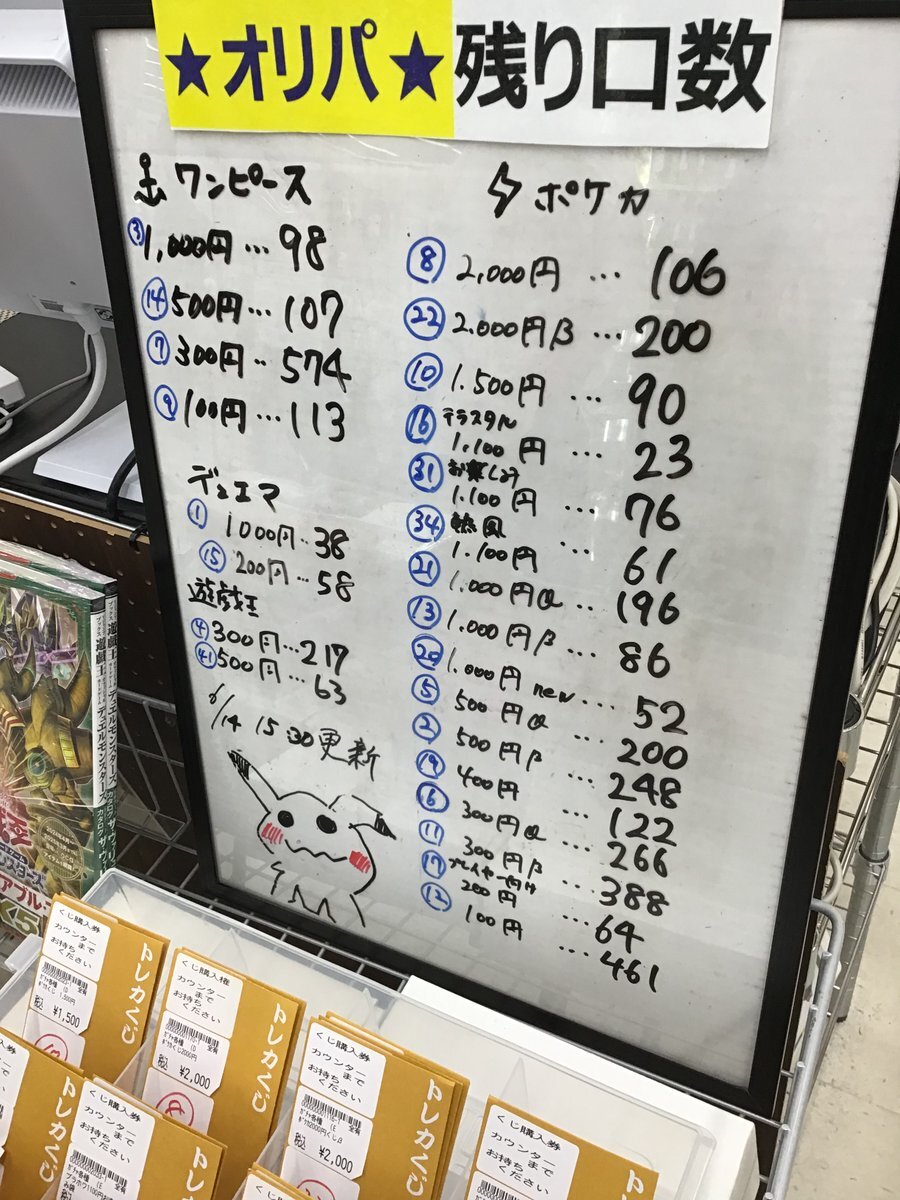 ★オリパ★残り口数
ワンピース
③1,000円…98
⑭500円…107
⑦300円‥574
⑨100円…113
デュエマ
①1000円…38
⑮200円…58
遊戯王
④300円…217
㊶500円…63
6/14 15:30更新
ポケカ
⑧2,000円…106
㉒2.000円β…200
⑩1.500円…90
⑯テラスタル
1.100円…23
㉛お楽しみ
1.100円…76
㉞熱風
1.100円…61
㉑1.000円α…196
⑬1.000円β…86
⑳1.000円new…52
⑤500円α…200
②500円β…248
⑲400円…122
⑥300円α…266
⑪300円β…388
⑰プレイヤー向け
200円…64
⑫100円…461
遊戯王
デュエルモンスターズ
遊戯王
デュエルモンスターズ
くじ購入券
カウンターまで
お持ち
ください
税込 ¥1,500
トレカくじ
くじ購入権
カウンター
まで
お持ち
ください
ポケカくじ2000円
税込 ¥2,000
トレカくじ
くじ購入券
カウンターまで
お持ち
ください
ポケカ2000円くじβ
税込 ¥2,000
トレカくじ
くじ購入券
カウンターまで
お持ち
ください
トレカくじ
くじ購入券
カウンターまで
お持ち
ください
トレカくじ
トレカくじ